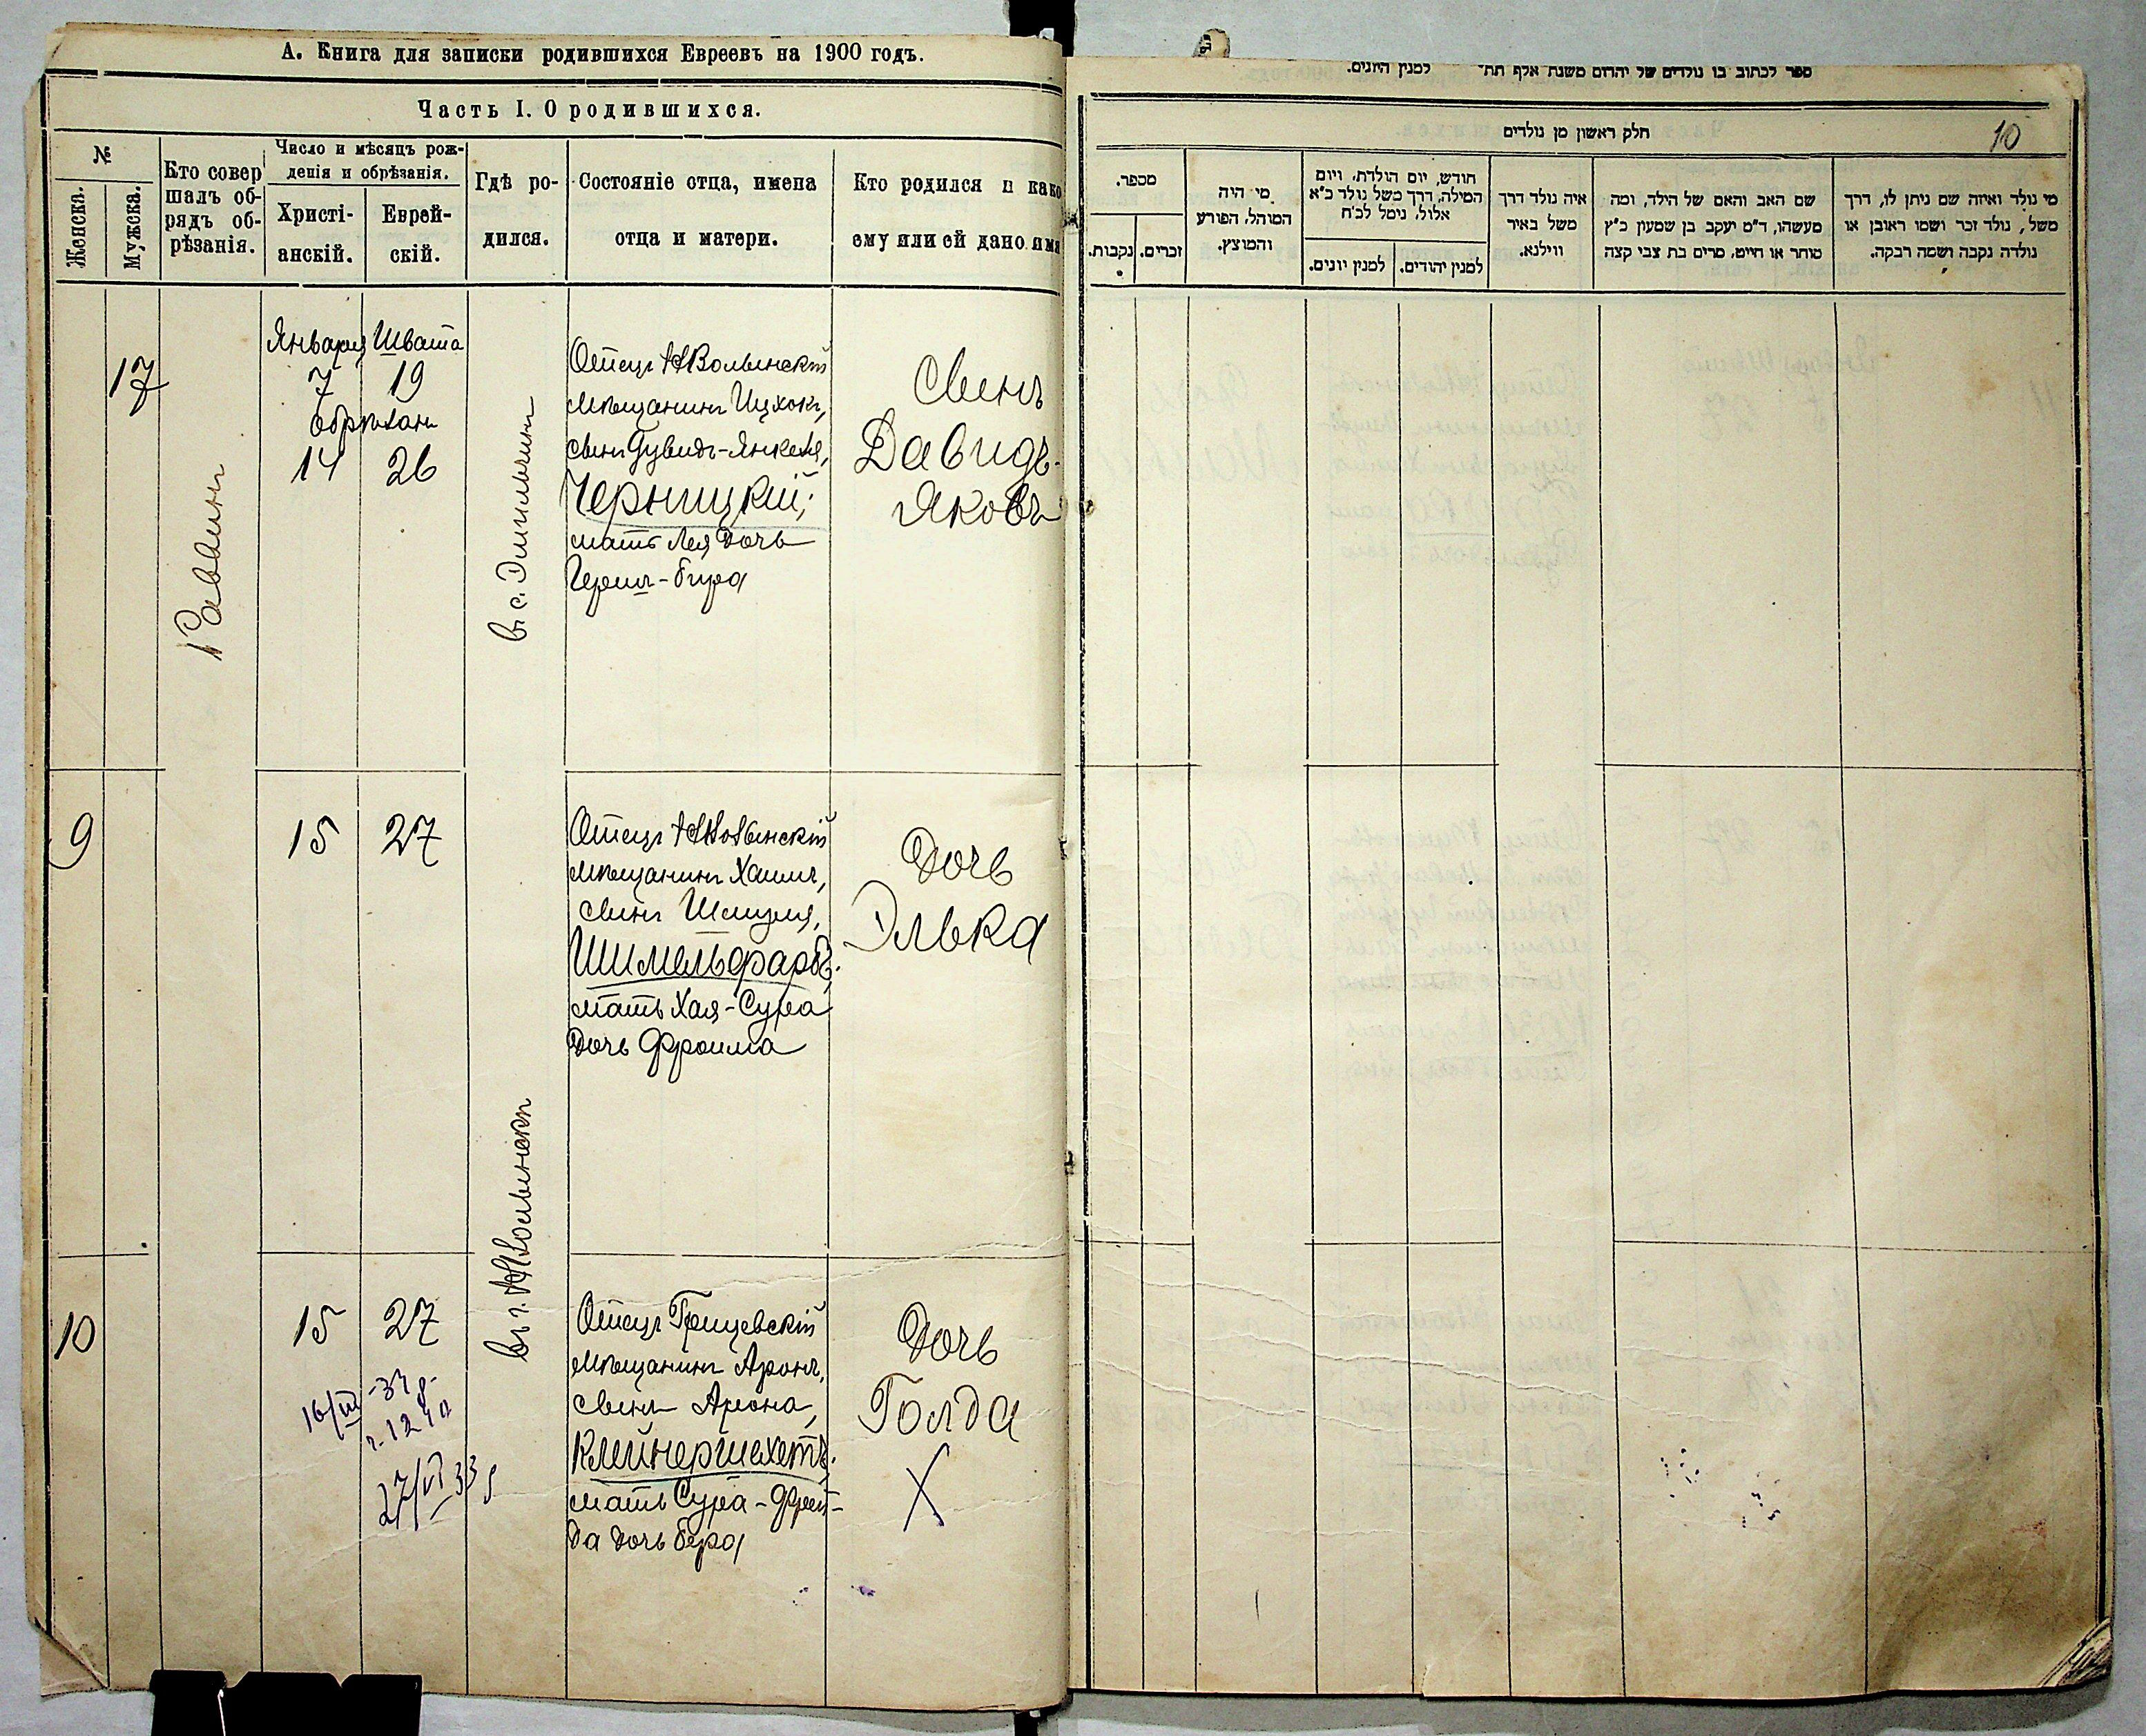 А. Книга для записки родившихся Евреевъ на 1900 годъ.
Часть I. О родившихся.
№
Женска.
Мужска.
Кто совер
шалъ об-
рядъ об-
рѣзанія.
Число и мѣсяцъ рож-
денія и обрѣзанія.
Христі-
анскій.
Еврей-
скій.
Гдѣ ро-
дился.
Состояніе отца, имена
отца и матери.
Кто родился и како
ему или ей дано имя
17
Раввинъ
Января Швата
7 19
обрѣзанъ
14 26
въ с. Эмильчинѣ
Отецъ НВолынскій
мѣщанинъ Ицхокъ,
сынъ Дувидъ-Янкеля,
Черницкій;
мать Лея дочь
Герша-Бера
Сынъ
Давидъ-
Яковъ
9
15 27
Отецъ НВолынскій
мѣщанинъ Хаимъ,
сынъ Шмуля,
Шимельфарбъ;
мать Хая-Сура
дочь Фроима
Дочь
Элька
въ г. НВолынскѣ
10
15 27
16/VII -34 г.
27/VI 33 г
Отецъ Грицевскій
мѣщанинъ Аронъ,
сынъ Арона,
Клейнершехетъ;
мать Сура-Фрей-
да дочь Бера
Дочь
Голда
X
ספר לכתוב בו נולדים של יהודים משנת אלף תת״ למנין היונים.
חלק ראשון מן נולדים
10
מספר.
נקבות.
זכרים.
מי היה
המוהל, הפורע
והמוצץ.
חודש, יום הולדת, ויום
המילה, דרך משל נולד כ״א
אלול, נימל לכ״ח
למנין יונים.
למנין יהודים.
איה נולד דרך
משל באיר
ווילנא.
שם האב והאם של הילד, ומה
מעשהו, ד״מ יעקב בן שמעון כ״ץ
סוחר או חייט, מרים בת צבי קצה
מי נולד ואיזה שם ניתן לו, דרך
משל, נולד זכר ושמו ראובן או
נולדה נקבה ושמה רבקה.